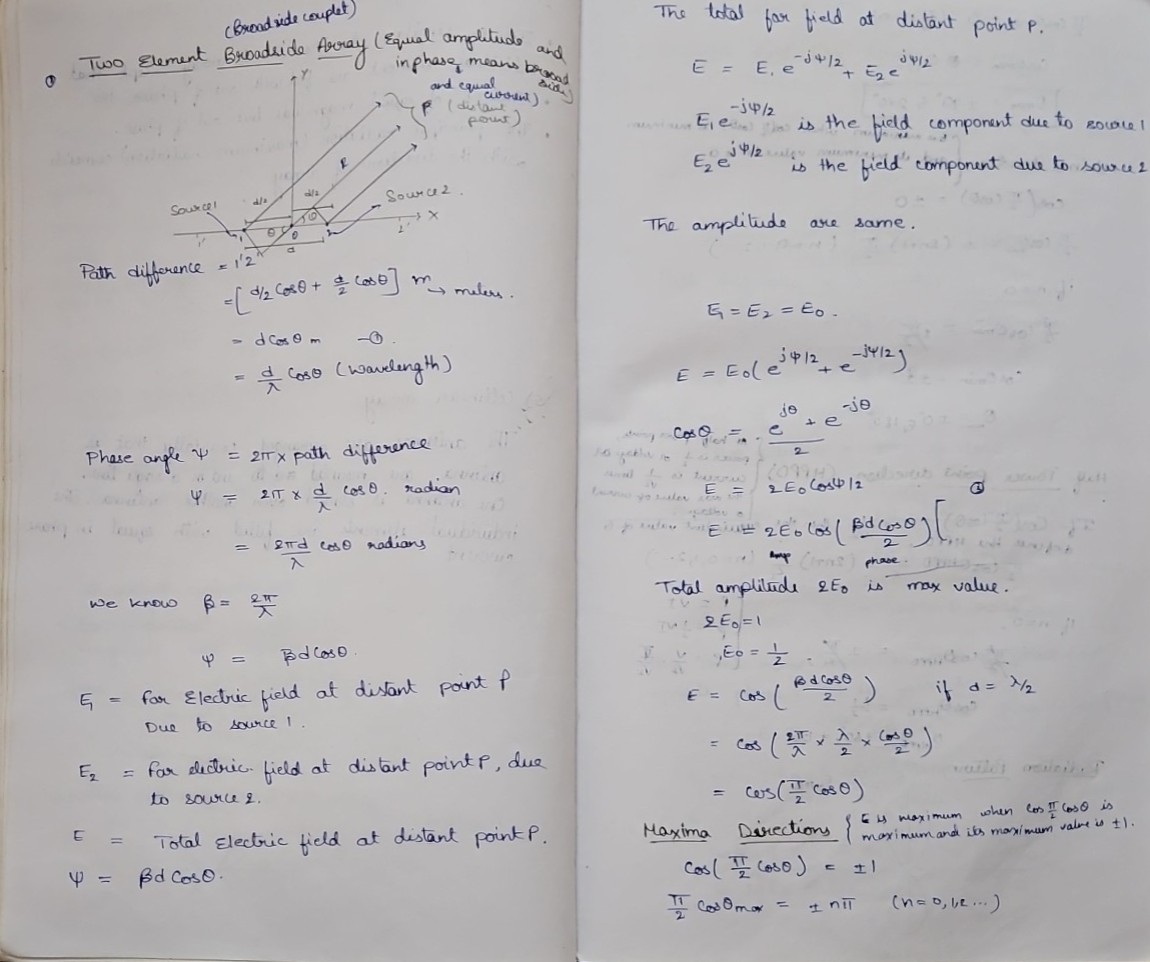 (Broadside couplet)
① Two Element Broadside Array (Equal amplitude and
inphase, means broad
side)
and equal
current).
Y
P (distant
point)
R
d/2
d/2
Source1
Source2.
X
1'
2'
1
θ
θ
0
2
d
Path difference = 1'2'
= [d/2 Cosθ + d/2 Cosθ] m → meters.
= dCosθ m —①.
= d/λ Cosθ (wavelength)
Phase angle Ψ = 2π x path difference
Ψ = 2π x d/λ cosθ. radian
= 2πd/λ cosθ radians
We know β = 2π/λ
Ψ = βdCosθ.
E₁ = Far Electric field at distant point P
Due to source 1.
E₂ = Far electric field at distant point P, due
to source 2.
E = Total Electric field at distant point P.
Ψ = βd Cosθ.
The total far field at distant point P.
E = E₁ e^-jΨ/2 + E₂ e^jΨ/2
E₁e^-jΨ/2 is the field component due to source 1
E₂e^jΨ/2 is the field component due to source 2
The amplitude are same.
E₁ = E₂ = E₀.
E = E₀(e^jΨ/2 + e^-jΨ/2)
Cosθ = (e^jθ + e^-jθ)/2
E = 2E₀ CosΨ/2 ②
E = 2E₀ Cos(βd Cosθ/2) [
Amp phase.
Total amplitude 2E₀ is max value.
2E₀ = 1
E₀ = 1/2.
E = cos(βdcosθ/2) if d = λ/2
= cos(2π/λ x λ/2 x Cosθ/2)
= cos(π/2 cosθ)
Maxima Directions { E is maximum when cos π/2 cosθ is
maximum and its maximum value is ±1.
Cos(π/2 Cosθ) = ±1
π/2 Cosθmax = ±nπ (n=0,1,2...)